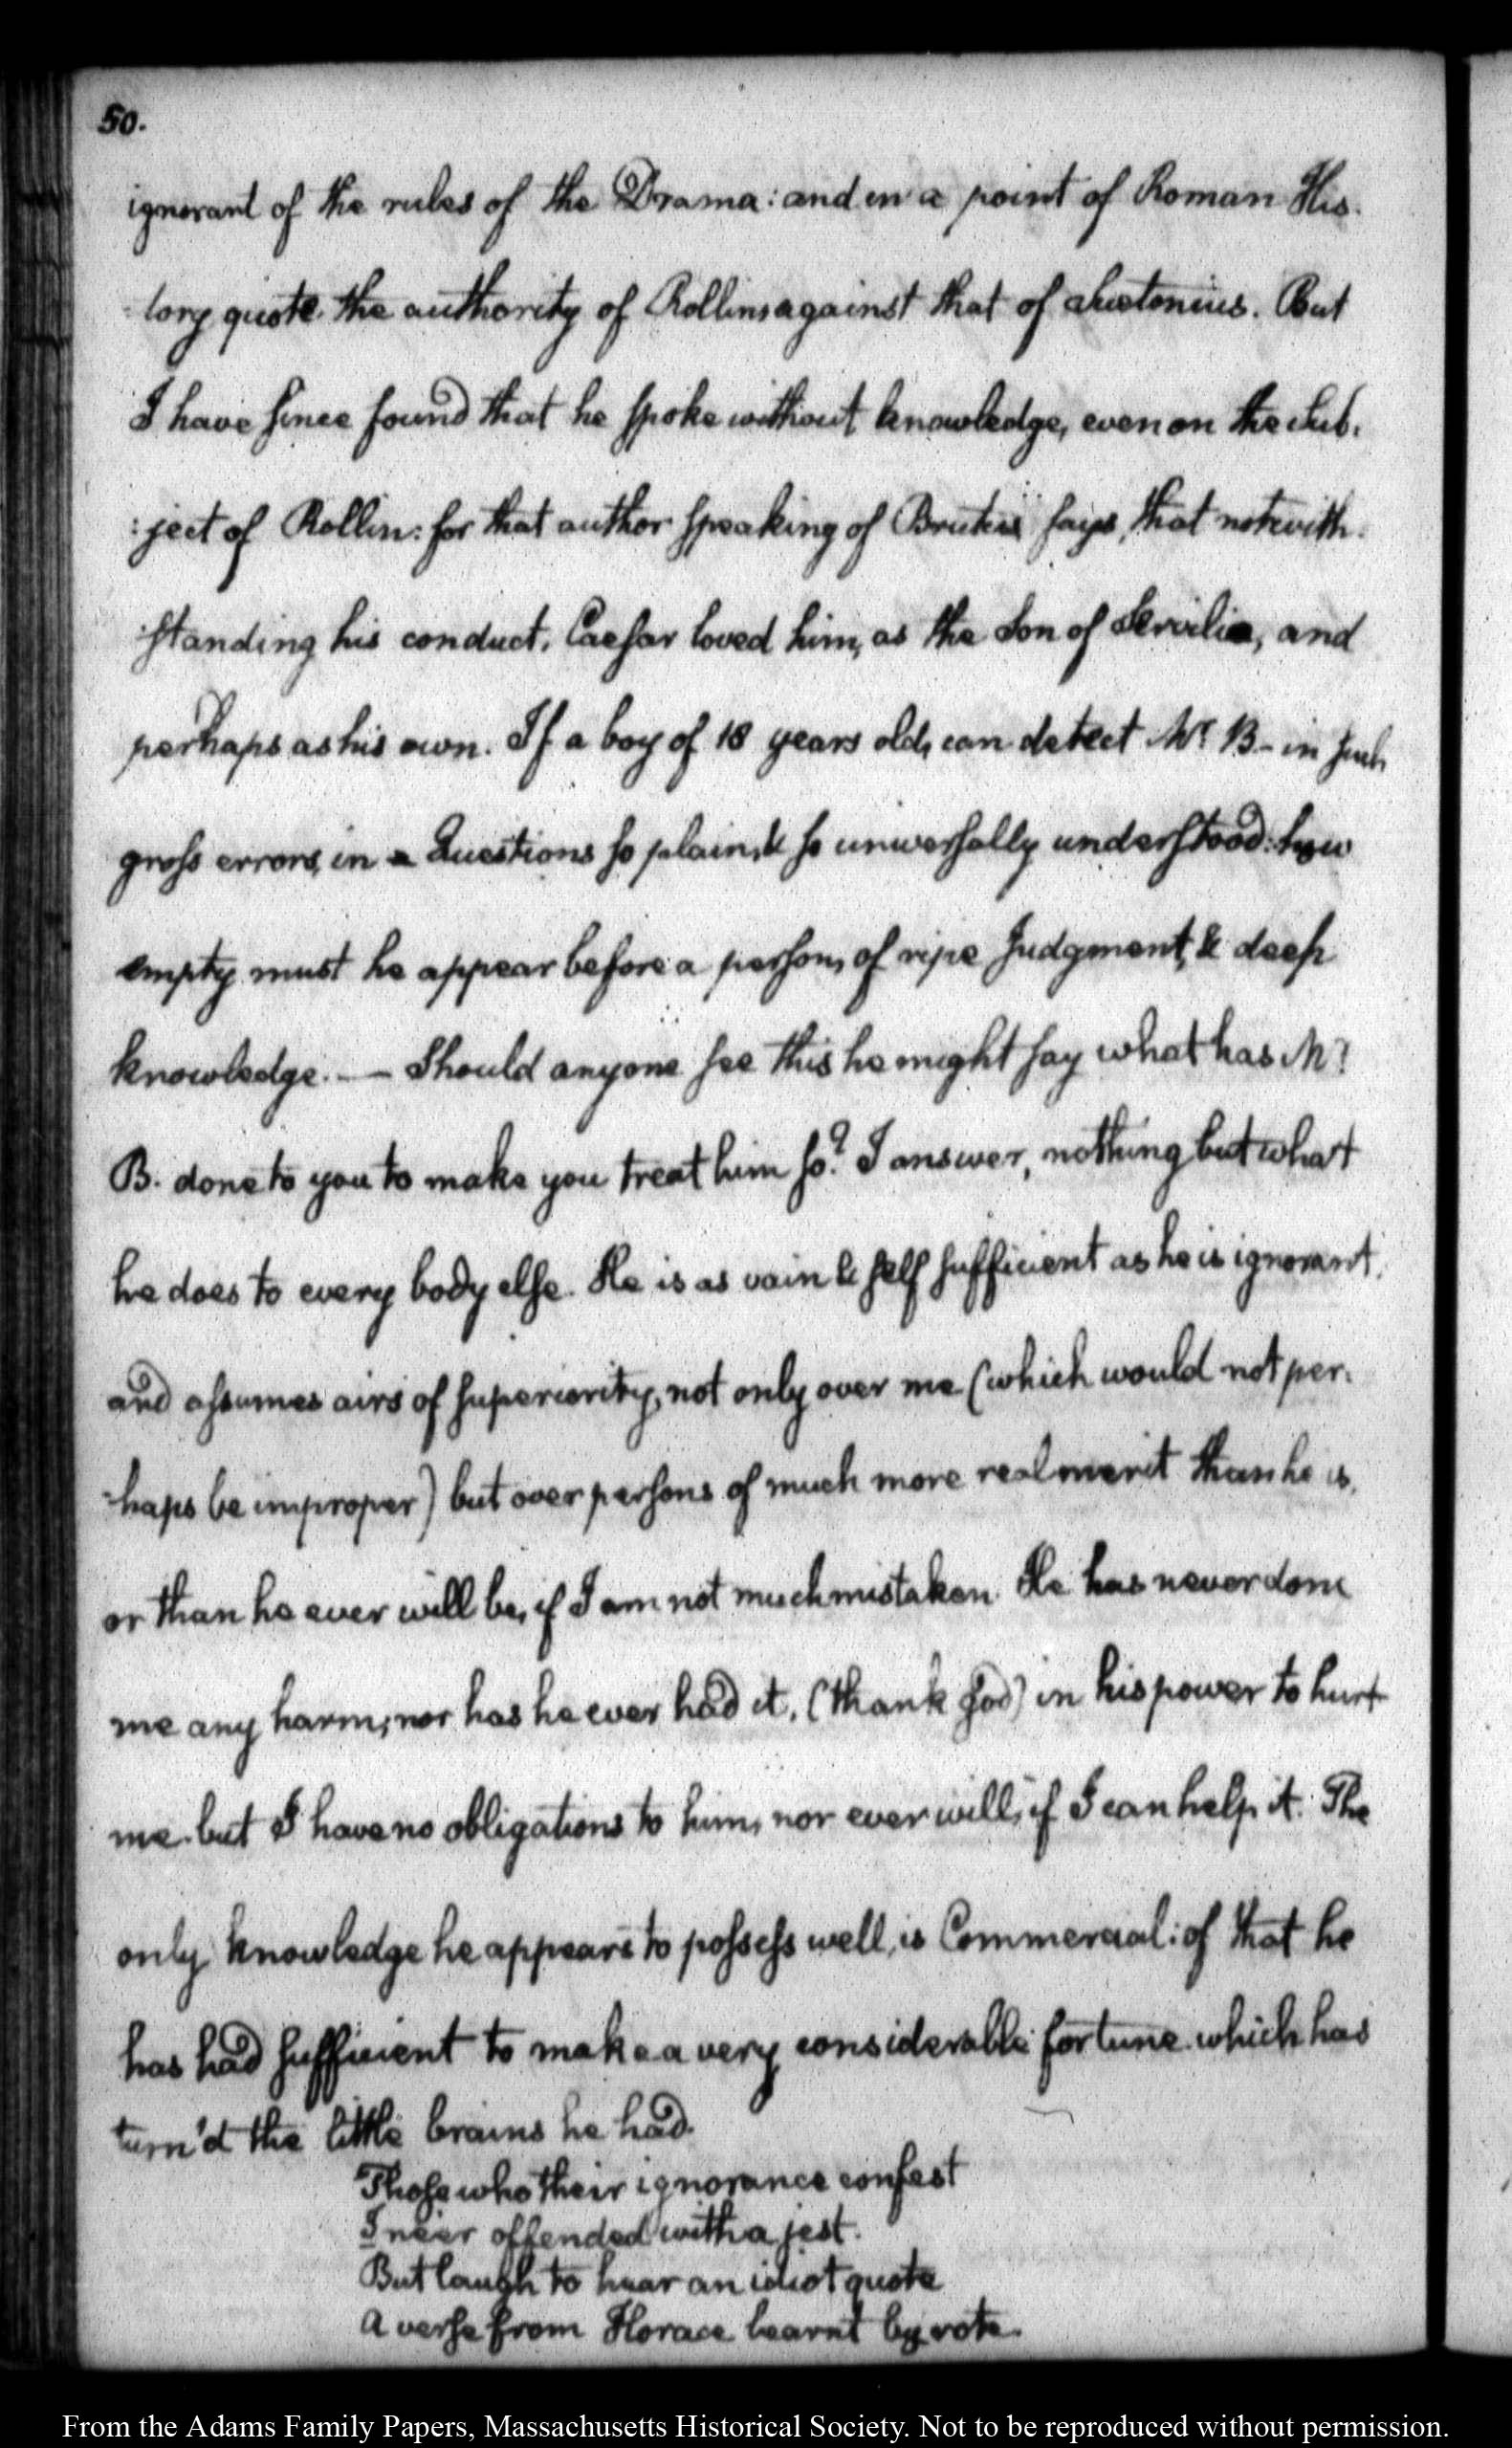 50.
ignorant of the rules of the Drama: and on a point of Roman His-
tory quote the authority of Rollins against that of Suetonius. But
I have since found that he spoke without knowledge, even on the Sub-
:ject of Rollin: for that author speaking of Brutus says, that notwith-
standing his conduct, Caesar loved him, as the Son of Servilia, and
perhaps as his own. If a boy of 18 years old, can detect Mr. B- in such
gross errors, in a Questions so plain, & so universally understood: how
empty must he appear before a person, of ripe Judgment, & deep
knowledge. — Should anyone see this he might say what has Mr.
B. done to you to make you treat him so? I answer, nothing but what
he does to every body else. He is as vain & self sufficient as he is ignorant,
and assumes airs of superiority, not only over me (which would not per-
-haps be improper) but over persons of much more real merit than he is,
or than he ever will be, if I am not much mistaken. He has never done
me any harm; nor has he ever had it, (thank God) in his power to hurt
me. but I have no obligations to him, nor ever will, if I can help it. The
only knowledge he appears to possess well, is Commercial: of that he
has had sufficient to make a very considerable fortune which has
turn'd the little brains he had.
Those who their ignorance confest
I neer offended with a jest.
But laugh to hear an idiot quote
A verse from Horace learnt by rote.
From the Adams Family Papers, Massachusetts Historical Society. Not to be reproduced without permission.